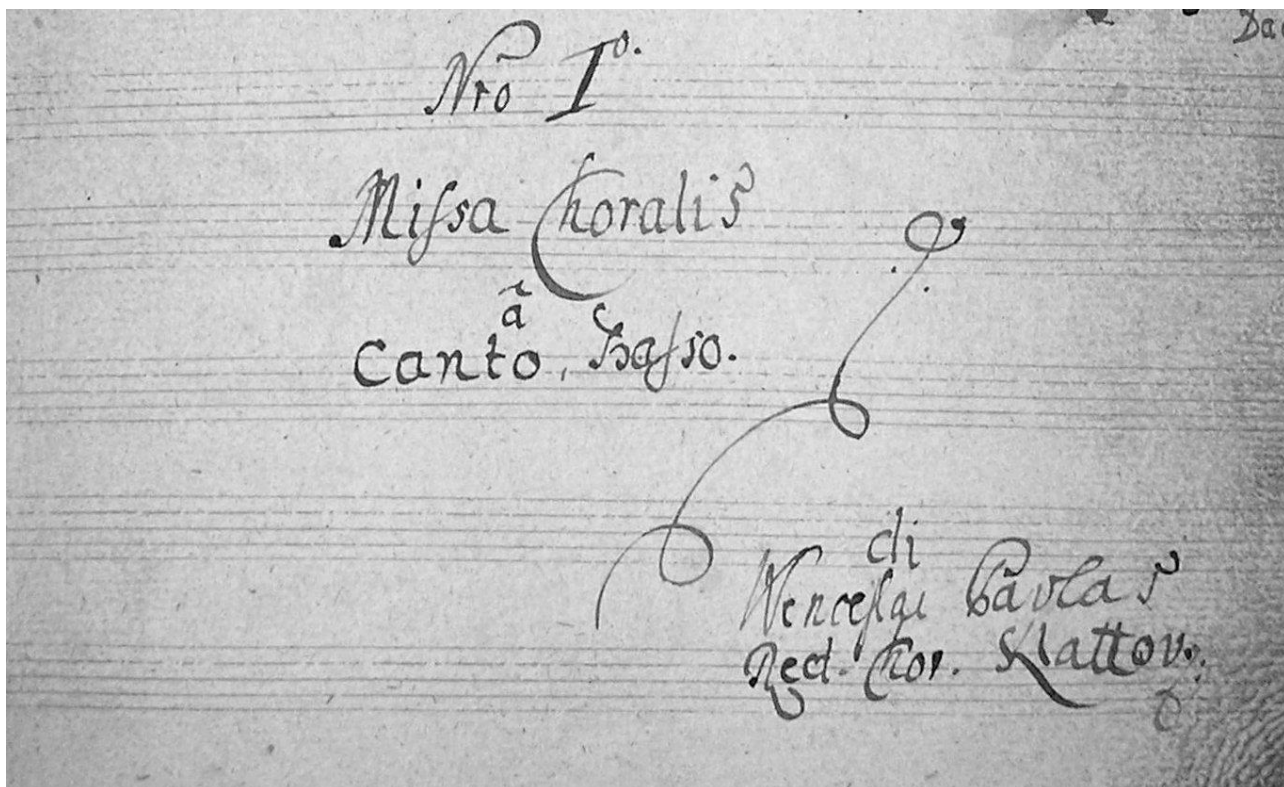 Nrõ I°.
Missa Choralis
ã
Canto, Basso.
di
Wenceslai
Red. Chor. Klattov.